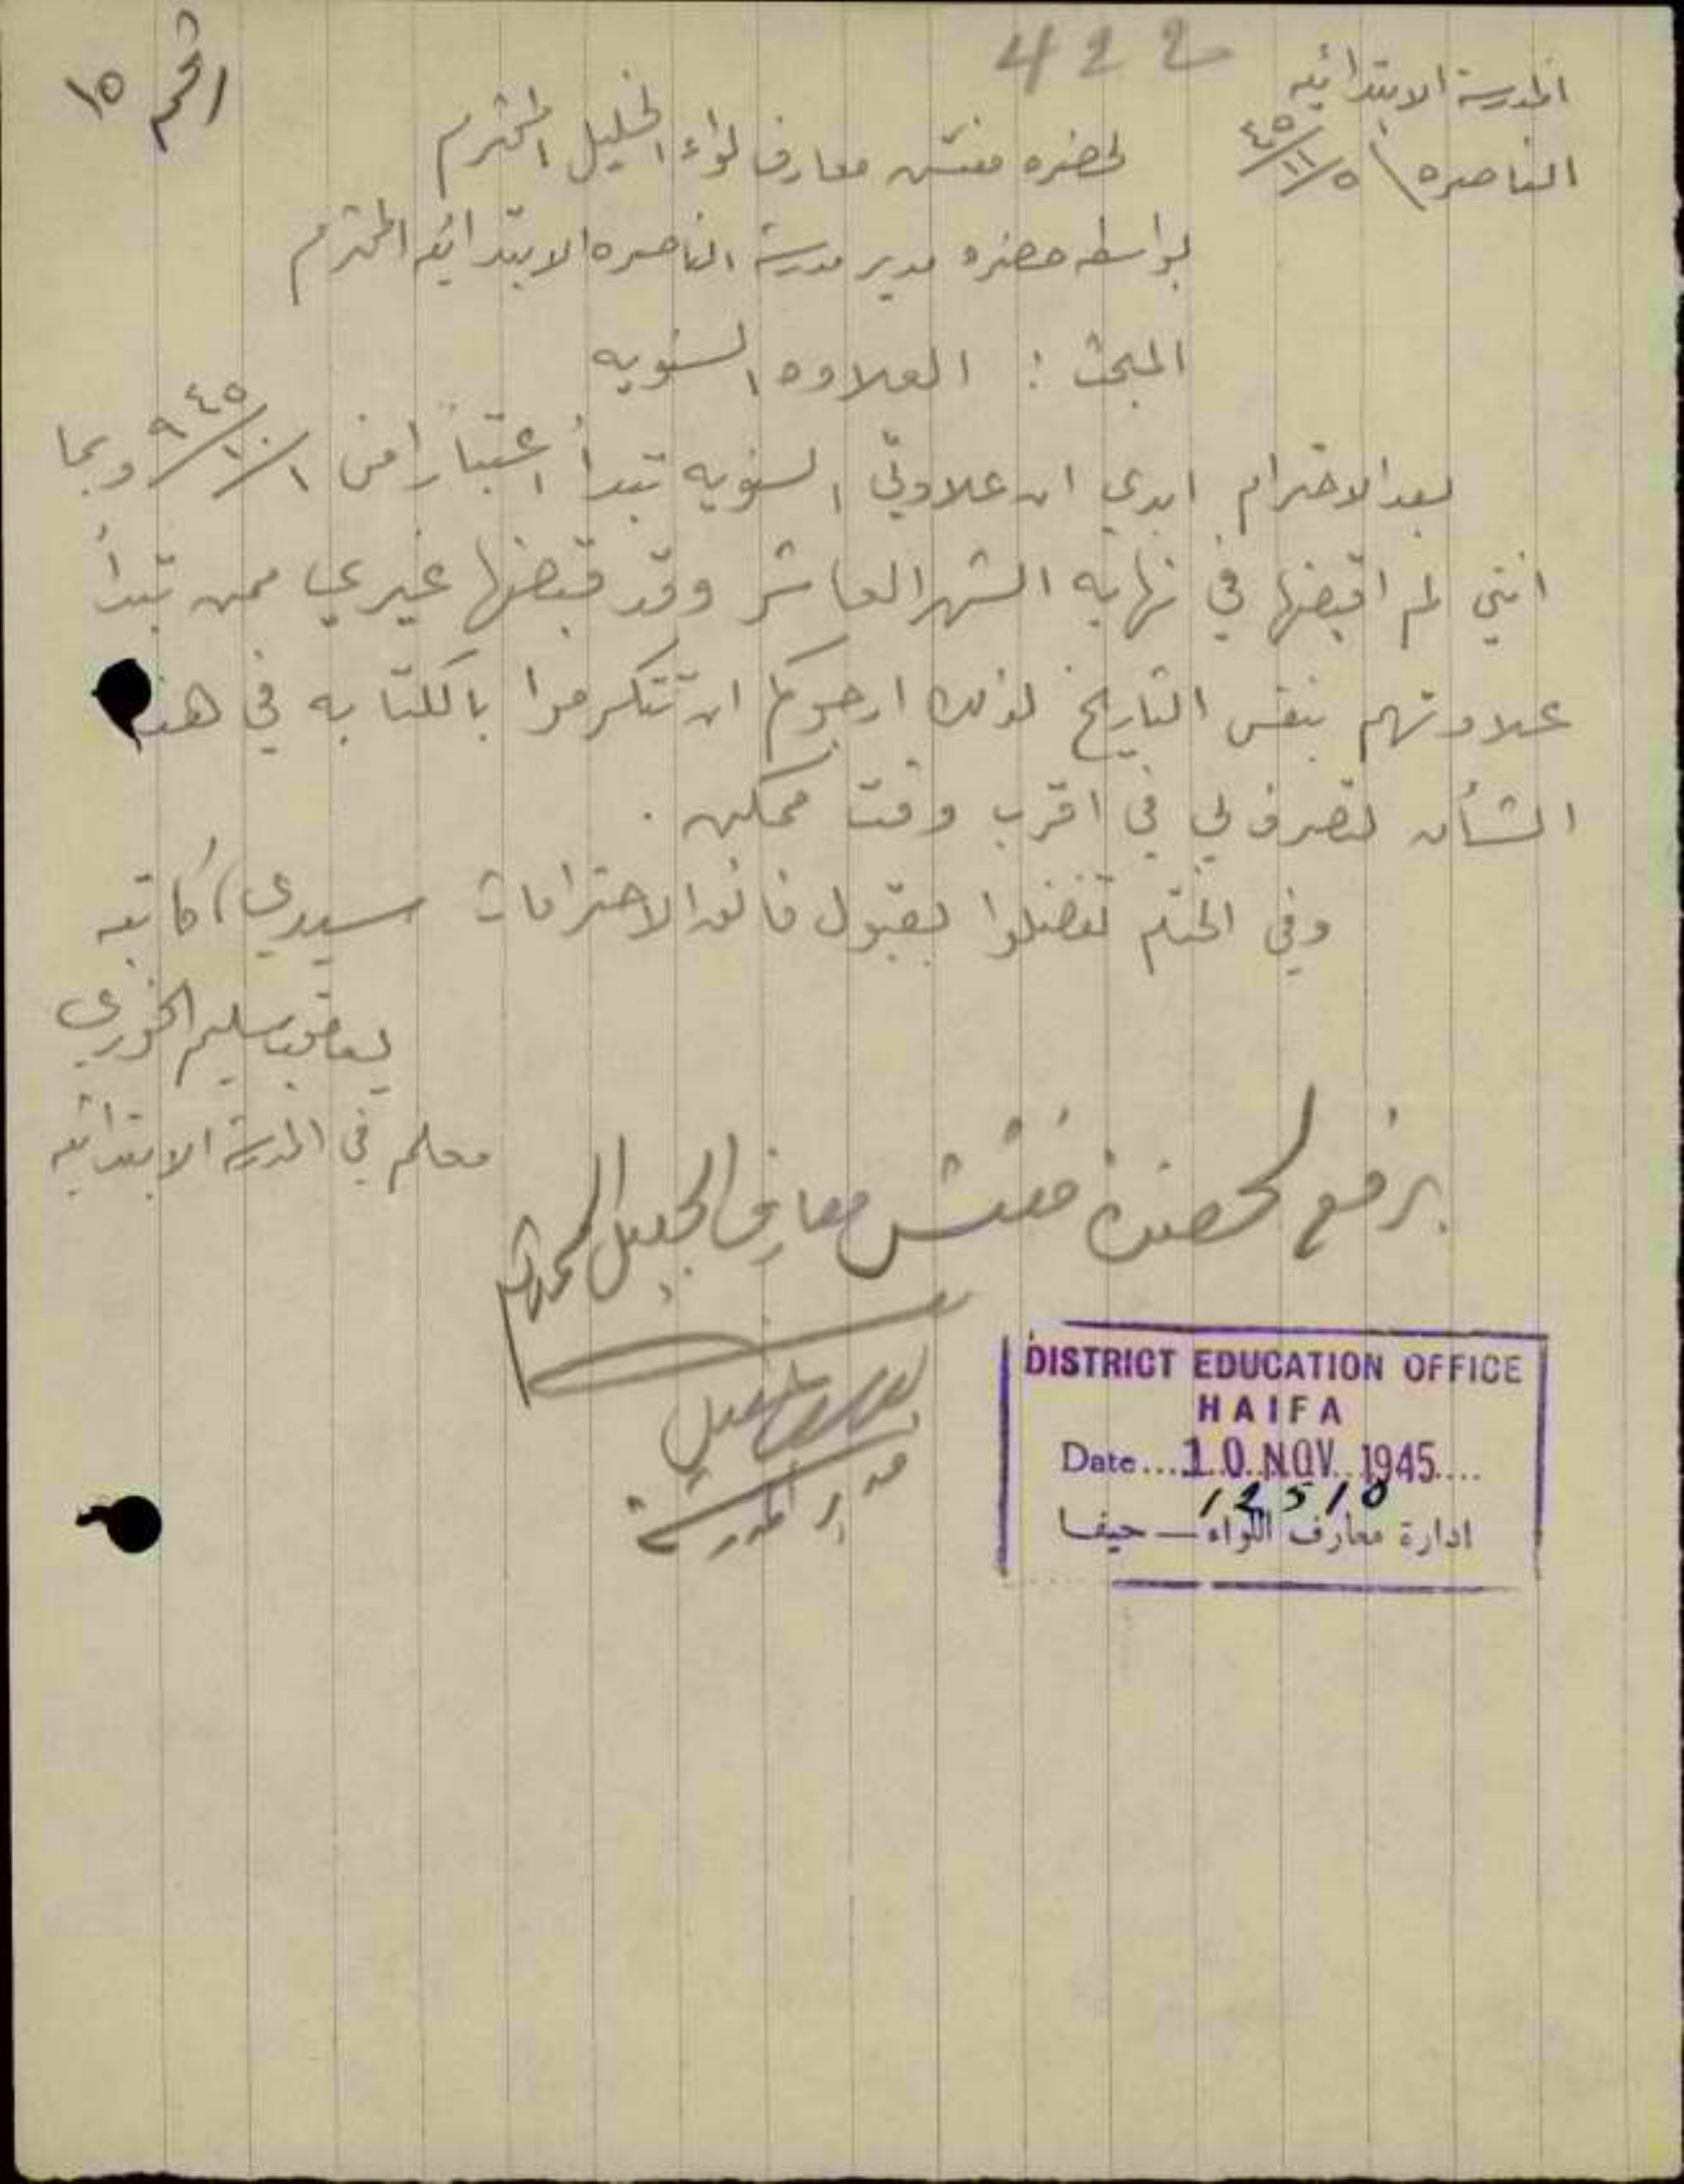 422
المدرسة الابتدائيه
الناصره ٥/١١/٤٥
الرقم ١٥
لحضره مفتش معارف لواء الجليل المحترم
بواسطه حضره مدير مدرسة الناصره الابتدائيه المحترم
المبحث : العلاوه السنويه
بعد الاحترام ابدي ان علاوتي السنويه تبدأ اعتباراً من ١/١٠/٩٤٥ وبما
انني لم اقبضها في نهايه الشهر العاشر وقد قبضها غيري ممن تبدأ
علاوتهم بنفس التاريخ لذلك ارجوكم ان تتكرموا بالكتابه في هذا
الشأن لتصرف لي في اقرب وقت ممكن .
وفي الختام تفضلوا بقبول فائق الاحترامات سيدي، كاتبه
يعقوب سليم الخوري
معلم في المدرسة الابتدائيه
يرفع لحضرة مفتش معارف الجليل المحترم
مدير المدرسة
DISTRICT EDUCATION OFFICE
HAIFA
Date... 10 NOV 1945....
12510
ادارة معارف اللواء — حيفا